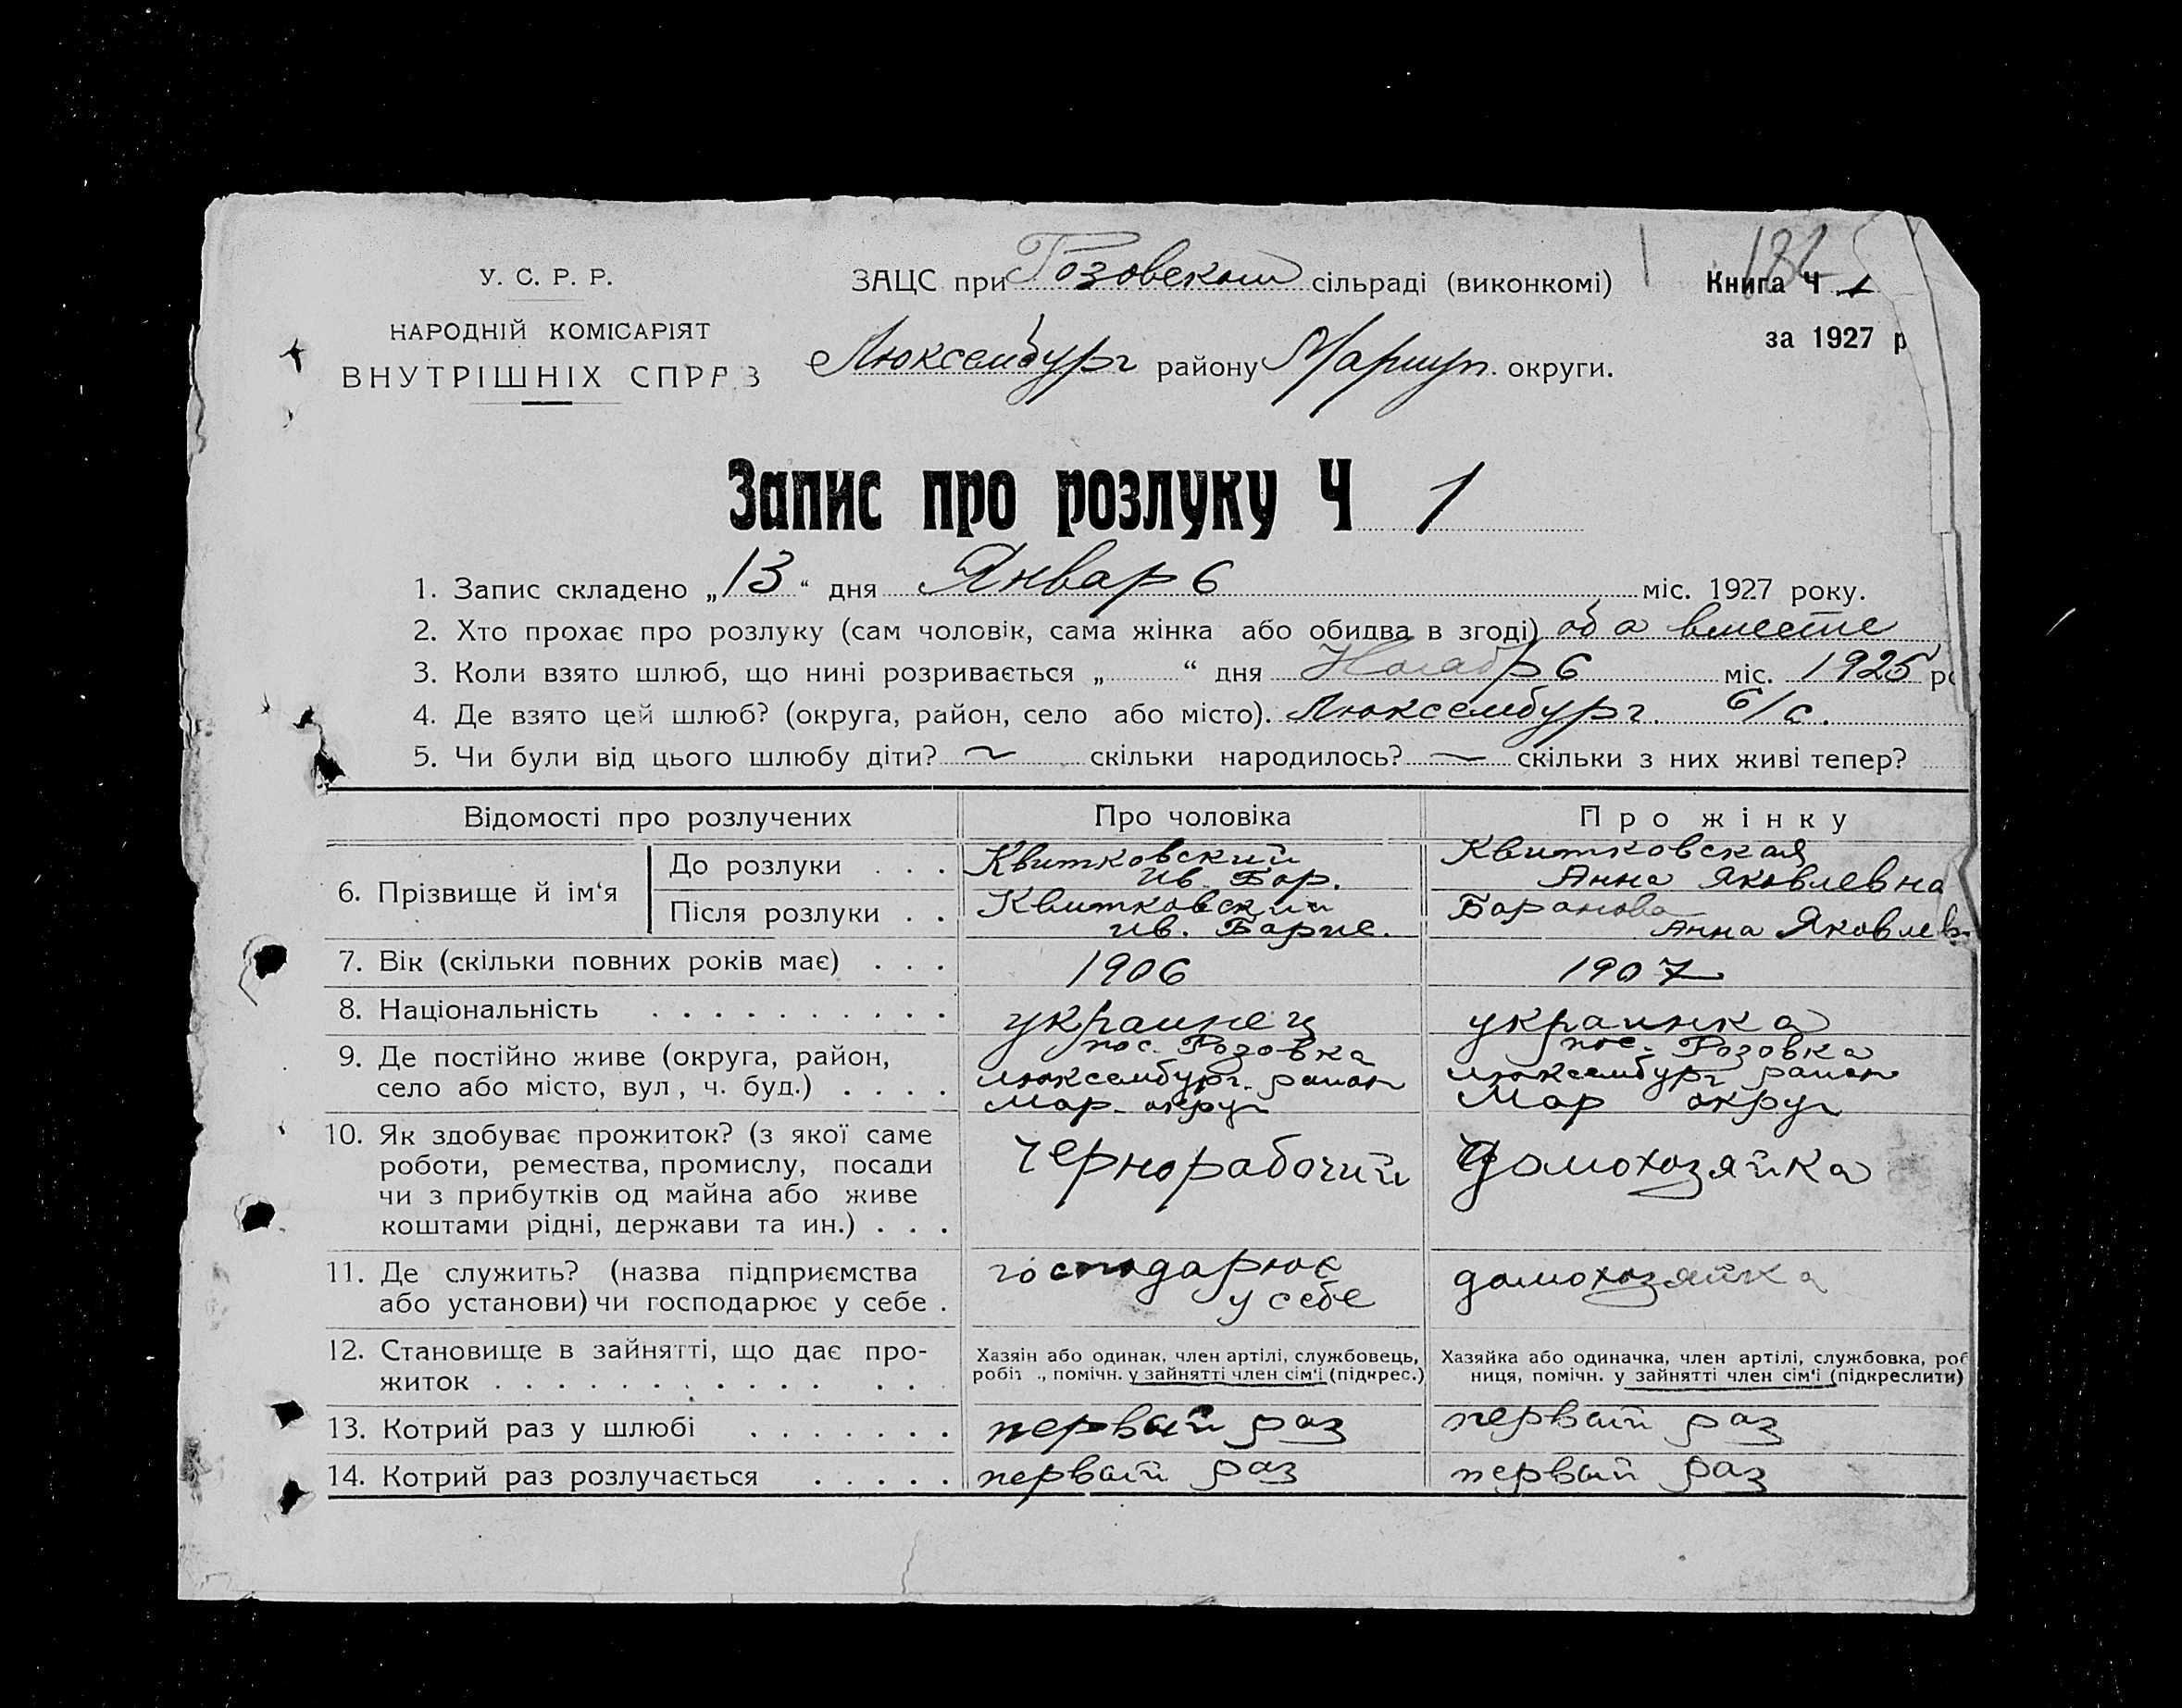 У. С. Р. Р.
НАРОДНІЙ КОМІСАРІЯТ
ВНУТРІШНІХ СПРАВ
ЗАЦС при Розовском сільраді (виконкомі)
Люксембург району Мариуп. округи.
Книга Ч 1
за 1927 р
Запис про розлуку Ч 1
1. Запис складено „13“ дня Январь міс. 1927 року.
2. Хто прохає про розлуку (сам чоловік, сама жінка або обидва в згоді) оба вместе
3. Коли взято шлюб, що нині розривається „ “ дня Ноябрь міс. 1925
4. Де взято цей шлюб? (округа, район, село або місто). Люксембург. с/с.
5. Чи були від цього шлюбу діти? ~ скільки народилось? — скільки з них живі тепер?
Відомості про розлучених Про чоловіка Про жінку
6. Прізвище й ім‘я
До розлуки . . . Квитковский Ив. Бор. Квитковская Анна Яковлевна
Після розлуки . . Квитковский Ив. Борис. Баранова Анна Яковлев
7. Вік (скільки повних років має) . . . 1906 1907
8. Національність . . . . . . . . . . украинец украинка
9. Де постійно живе (округа, район, пос. Розовка пос. Розовка
село або місто, вул., ч. буд.) . . . . Люксембург. район Люксембург район
Мар. округ Мар округ
10. Як здобуває прожиток? (з якої саме
роботи, ремества, промислу, посади чернорабочий домохозяйка
чи з прибутків од майна або живе
коштами рідні, держави та ин.) . . .
11. Де служить? (назва підприємства господарює домохозяйка
або установи) чи господарює у себе . у себе
12. Становище в зайнятті, що дає про-
житок . . . . . . . . . . . . .
Хазяін або одинак, член артілі, службовець,
робіт ., помічн. у зайнятті член сім‘і (підкрес.)
Хазяйка або одиначка, член артілі, службовка, роб
ниця, помічн. у зайнятті член сім‘і (підкреслити)
13. Котрий раз у шлюбі . . . . . . . первый раз первый раз
14. Котрий раз розлучається . . . . . первый раз первый раз